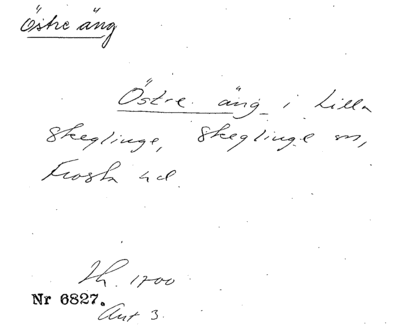 Östre äng
Östre äng i Lilla
Skeglinge, Skeglinge sn,
Frosta hd.
Lh. 1700
Nr 6827.
Akt 3.